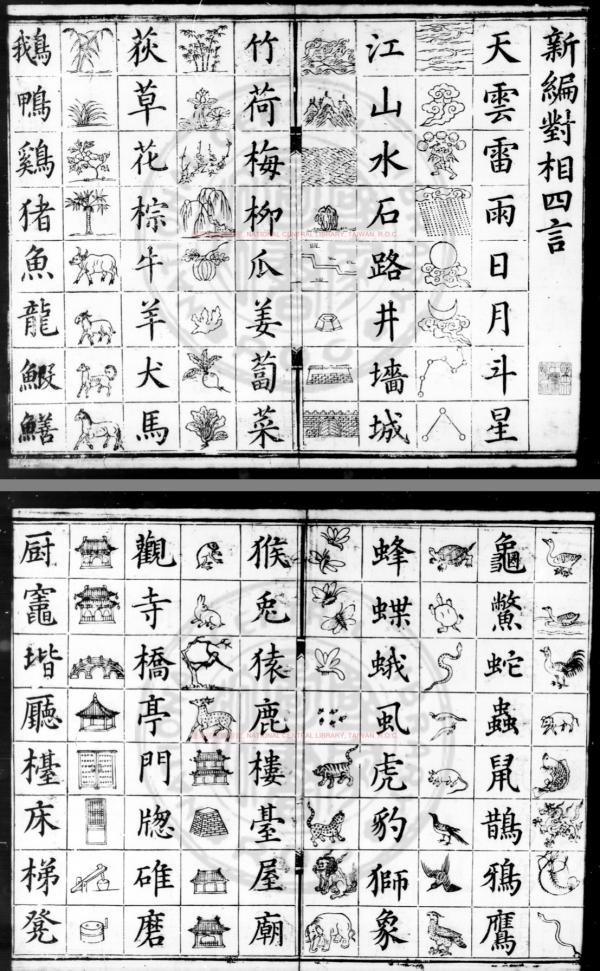 新編對相四言
天雲雷雨日月斗星
江山水石路井墻城
竹荷梅柳瓜姜蔔菜
荻草花棕牛羊犬馬
鵝鴨鷄猪魚龍鰕鱔
NATIONAL CENTRAL LIBRARY, TAIWAN, R.O.C.
龜鱉蛇蟲鼠鵲鴉鷹
蜂蝶蛾虱虎豹獅象
猴兎猿鹿樓臺屋廟
觀寺橋亭門牕碓磨
厨竈堦廳檯床梯凳
NATIONAL CENTRAL LIBRARY, TAIWAN, R.O.C.